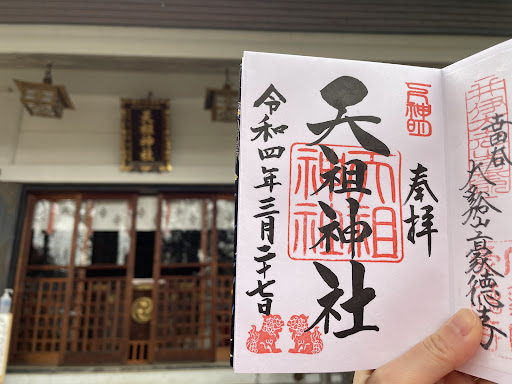 天祖神社
世田谷
大谿山豪徳寺
奉拝
天祖神社
天祖神社
令和四年三月二十七日